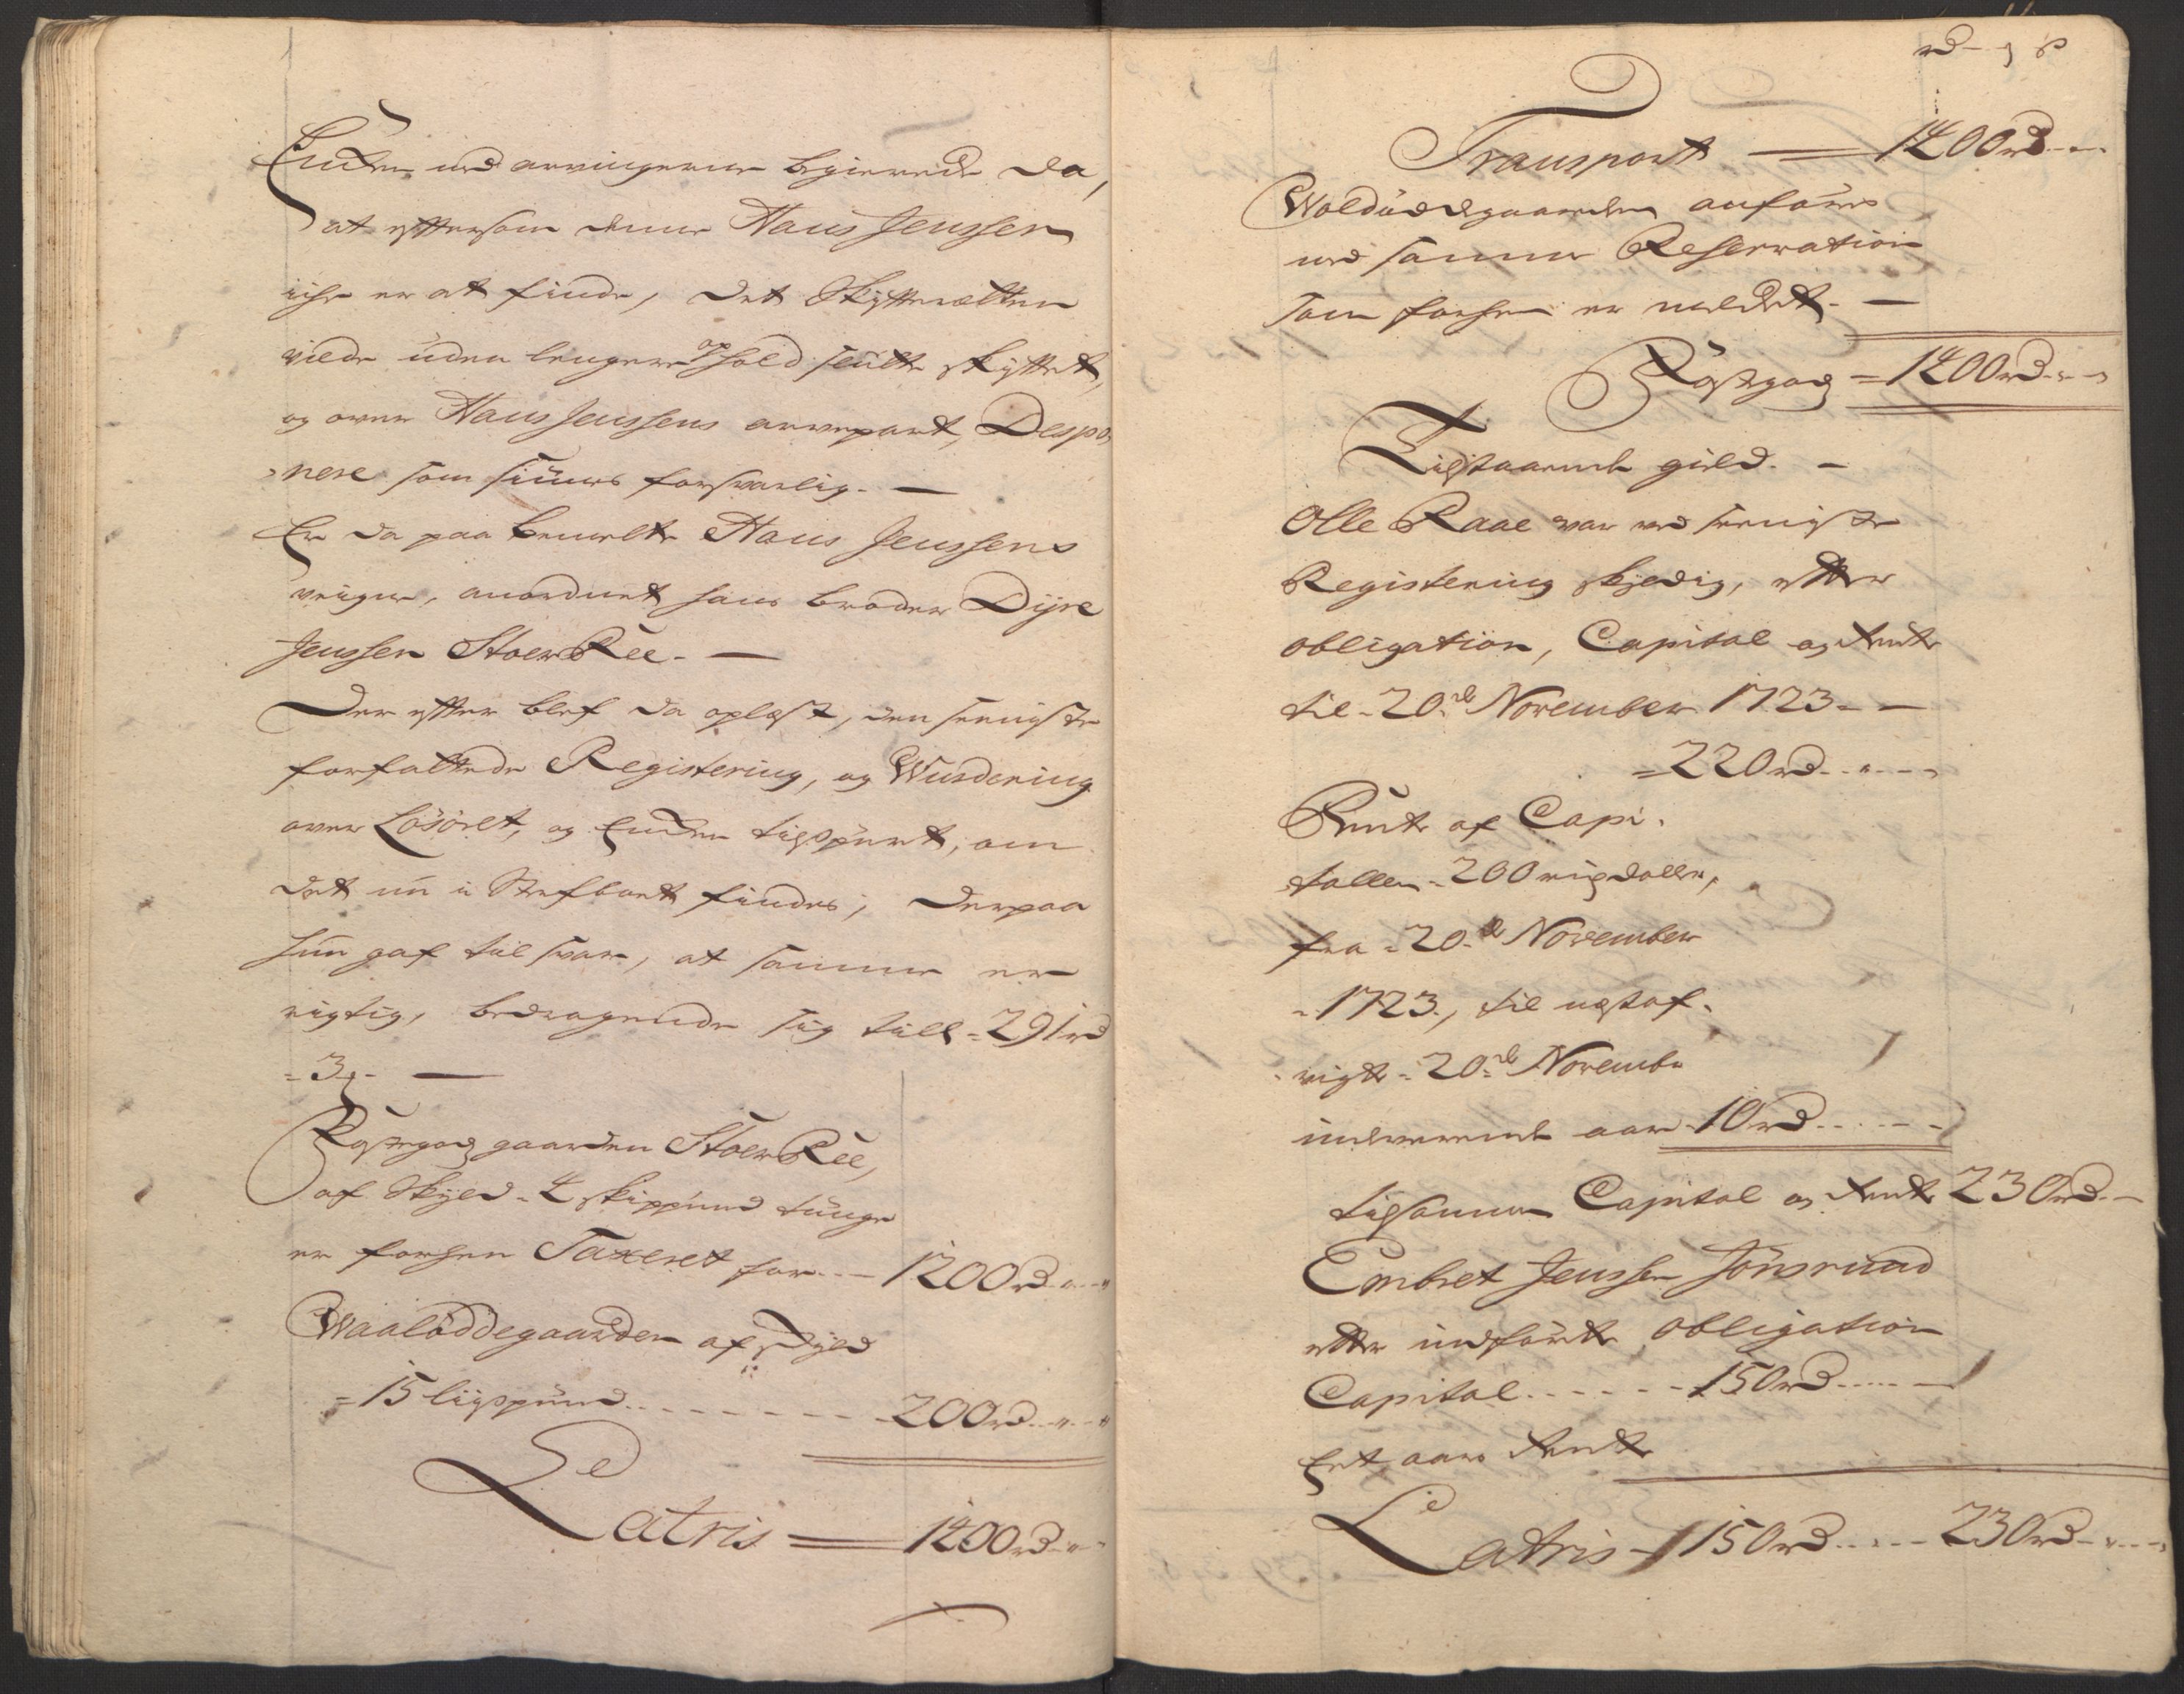 Encken med arvingerne begierede da,
at efftersom denne Hans Jenssen
iche er at finde, det Skiffteretten
vilde uden lengere ophold slutte skifftet,
og over Hans Jenssens arvepart, Despo
nere som siunes forsvarlig. —
Er da paa bemelte Hans Jenssens
veigne, anordnet hans broder Dyre
Jenssen Stoer Ree. —
Der effter blef da oplæst, den seeniste
forfattede Registering, og Wurdering
over Løsøret, og Encken tilspurt, om
det nu i Sterfboet findes, derpaa
hun gaf til svar, at samme er
rigtig, bedragende sig till = 291 rd
= 3 ₰ —
Jordegods gaarden Stoer Ree,
af Skyld = 4 skippund tunge
er forhen Taxeret for — 1200 rd
Waalødegaarden af skyld
= 15 lispund 200 rd
Latris = 1400 rd
rd ₰ β
Transport — 1400 rd
Woldødegaarden anføres
med samme Reservation
som forhen er meldet. —
Jordegods = 1400 rd
Tilstaaende gield. —
Olle Raae var ved seeniste
Registering skyldig, effter
obligation, Capital og Rente
til 20de November 1723 —
= 220 rd
Rente af Capi
tallen = 200 rigsdaller,
fra = 20de November
= 1723, til nestaf
vigte = 20de November
indeverende aar = 10 rd
tilsammen Capital og Rente 230 rd
Embret Jenssen Jønsrund
effter indførte obligation
Capital 150 rd
Eet aars Rente
Latris 150 rd 230 rd